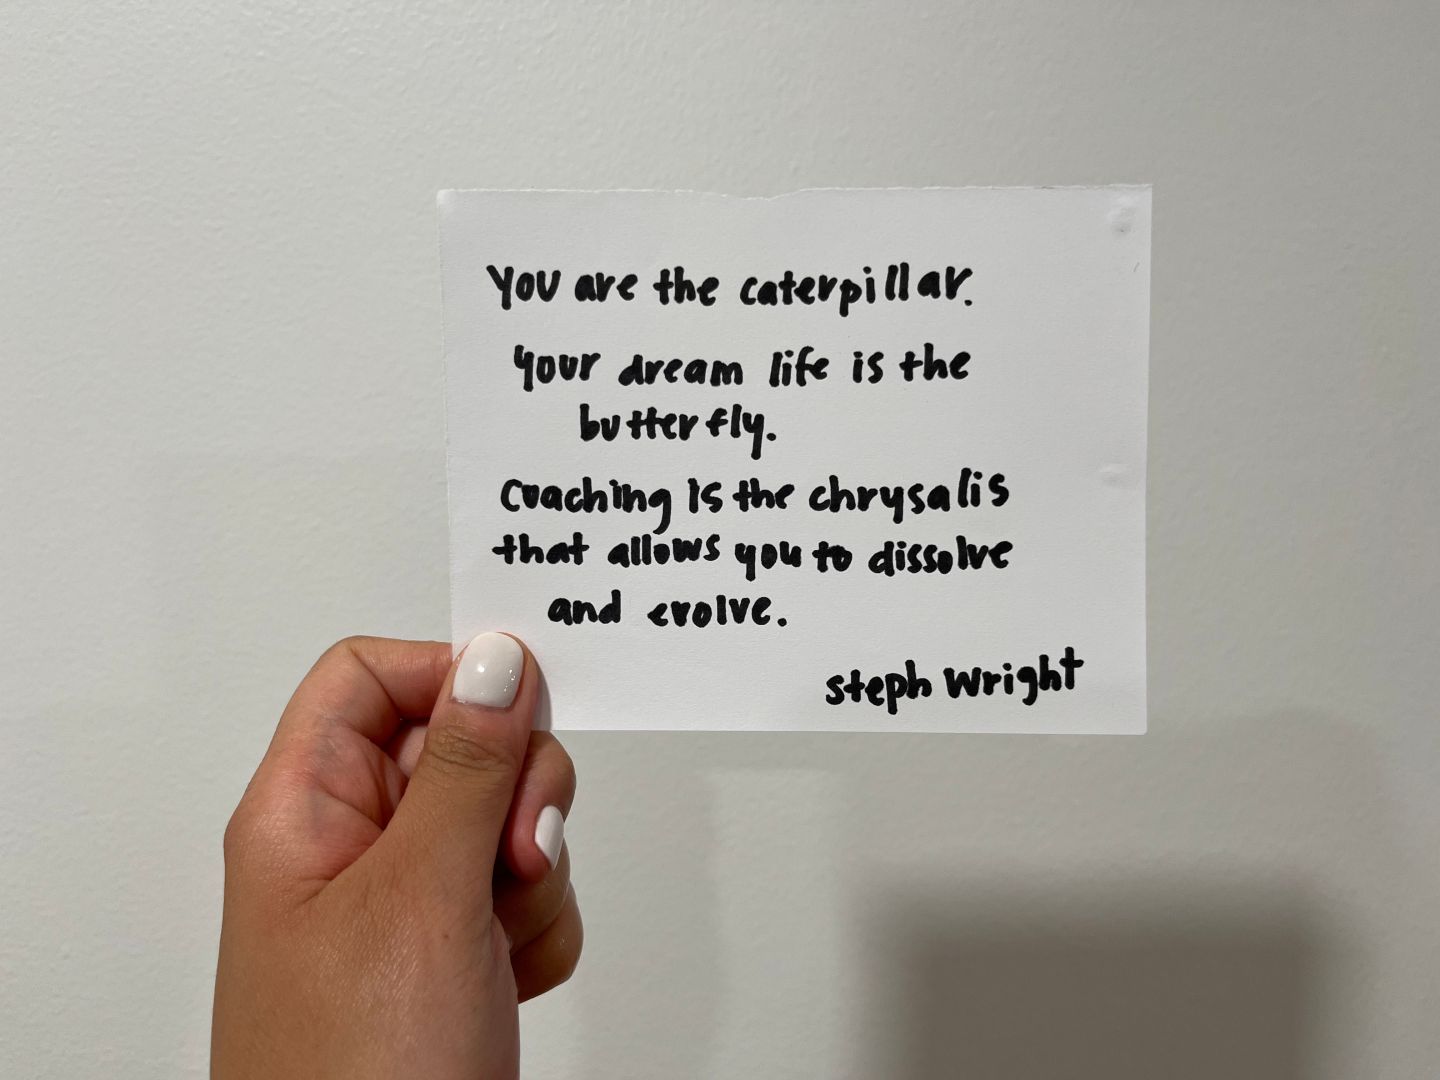 You are the caterpillar.
Your dream life is the
butterfly.
Coaching is the chrysalis
that allows you to dissolve
and evolve.
steph wright